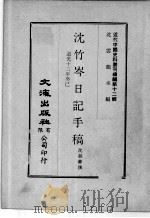 近代中國史料叢刊續編第十二輯
沈雲龍主編
沈竹岑日記手稿
道光十三年癸巳
文海出版社有限公司印行